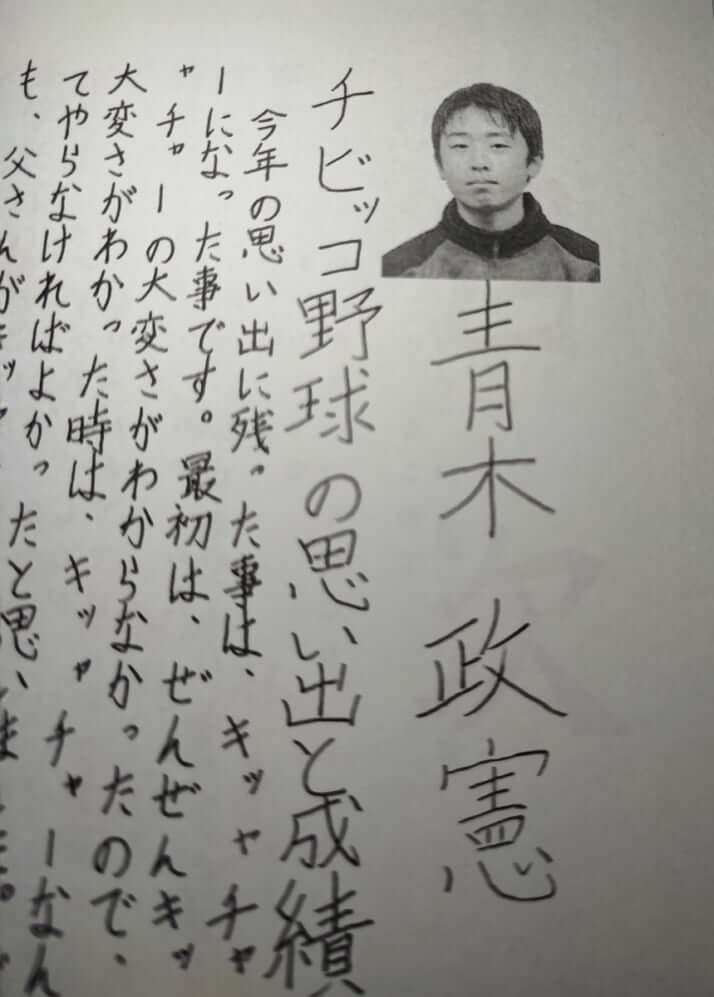 青木 政憲
チビッコ野球の思い出と成績
今年の思い出に残った事は、キャッチャ
ーになった事です。最初は、ぜんぜんキッ
ャチャーの大変さがわからなかったので、
大変さがわかった時は、キッャチャーなん
てやらなければよかったと思いました。
も、父さんがキッャ